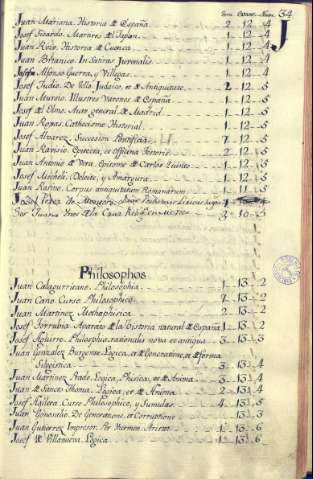 Tom. Estan. Num. 34
J
Juan Mariana. Historia de España. 2 . 12 . 4
Josef Sicardo. Martires del Japon. 1 . 12 . 4
Juan Ruiz. Historia de Cuenca. 1 . 12 . 4
Juan Britanico. In Satiras Juvenalis. 1 . 12 . 4
Josef Alfonso Guerra, y Villegas. 1 . 12 . 4
Josef Judio. De Bello Judaico, et de Antiquitate. 2 . 12 . 5
Juan Mureno. Illustres Varones de España 1 . 12 . 5
Josef del Olmo. Auto general de Madrid 1 . 12 . 5
Juan Rojas. Cathecismo Historial. 1 . 12 . 5
Josef Alvarez. Succesion Pontificia. 7 . 12 . 5
Juan Ravisio. Officina 2 . 12 . 5
Juan Antonio de Vera. Epitome de Carlos Quinto. 1 . 12 . 5
Josef Micheli. Deleite, y Amargura. 1 . 12 . 5
Juan Rosino. Corpus antiquitatum Romanarum 1 . 11 . 5
Josef Perez de
Sor Juana Ines de la Cruz 3 . 10 . 5
Philosophos
Juan Calagurritano. Philosophia. 1 . 13 . 2
Juan Cano. Curso Philosophico. 7 . 13 . 2
Juan Martinez. Methaphisica 2 . 13 . 2
Josef Torrubia. Aparato de la Historia natural de España. 1 . 13 . 2
Josef Aguirre. Philosophia rationalis nova et antigua 3 . 13 . 3
Juan Gonzalez Burgense. Logica, et de Generatione, et de forma
Silogistica 3 . 13 . 4
Juan Martinez Prado. Logica, Phisica, et de Anima. 3 . 13 . 4
Juan de Santo Thoma. Logica, et de Anima. 2 . 13 . 4
Josef Najera. Curso Philosophico, y Sumulas. 4 . 13 . 5
Juan De Generatione, et Corruptione 1 . 13 . 3
Juan Gutierrez Impresor. 1 . 13 . 6
Josef de Villanueva. Logica 1 . 13 . 6